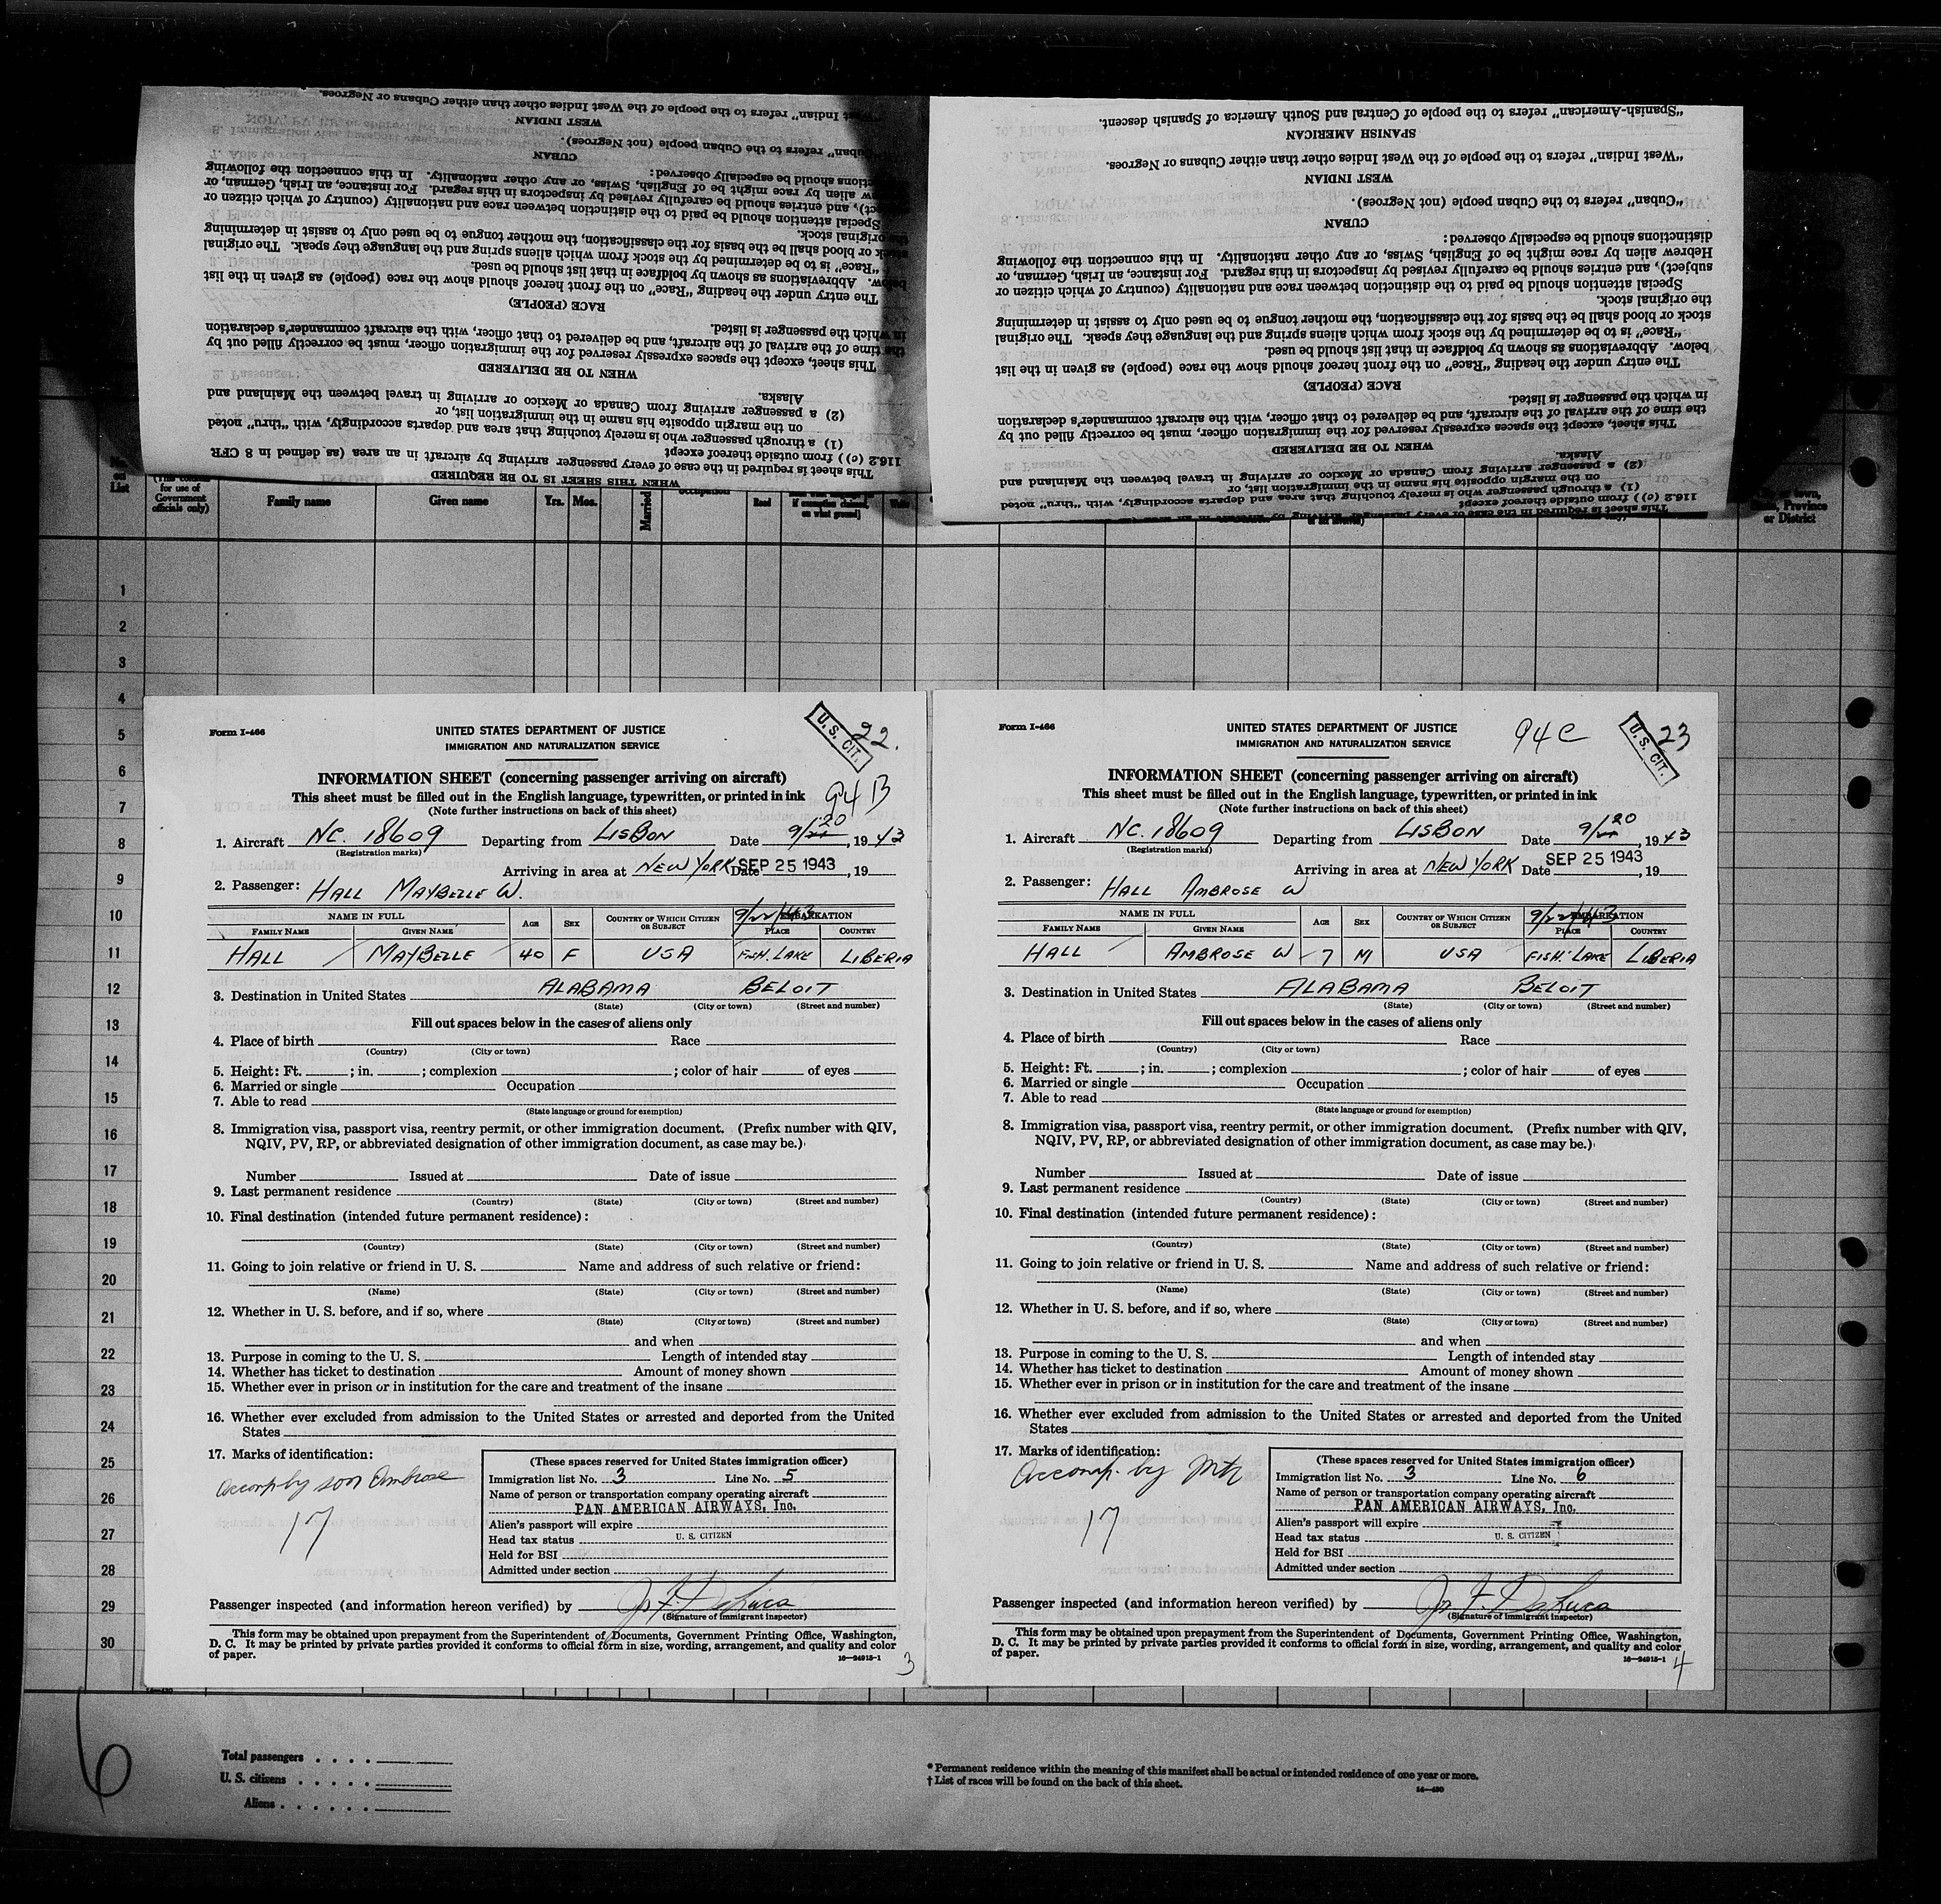 WHEN THIS SHEET IS TO BE REQUIRED
This sheet is required in the case of every passenger arriving by aircraft in an area (as defined in 8 CFR
116.2 (c)) from outside thereof except
(1) a through passenger who is merely touching that area and departs accordingly, with "thru" noted
on the margin opposite his name in the immigration list, or
(2) a passenger arriving from Canada or Mexico or arriving in travel between the Mainland and
Alaska.
WHEN TO BE DELIVERED
This sheet, except the spaces expressly reserved for the immigration officer, must be correctly filled out by
the time of the arrival of the aircraft, and be delivered to that officer, with the aircraft commander's declaration
in which the passenger is listed.
RACE (PEOPLE)
The entry under the heading "Race" on the front hereof should show the race (people) as given in the list
below. Abbreviations as shown by boldface in that list should be used.
"Race" is to be determined by the stock from which aliens spring and the language they speak. The original
stock or blood shall be the basis for the classification, the mother tongue to be used only to assist in determining
the original stock.
Special attention should be paid to the distinction between race and nationality (country of which citizen or
subject), and entries should be carefully revised by inspectors in this regard. For instance, an Irish, German, or
alien by race might be of English, Swiss, or any other nationality. In this connection the following
distinctions should be especially observed:
CUBAN
"Cuban" refers to the Cuban people (not Negroes).
WEST INDIAN
"West Indian" refers to the people of the West Indies other than either Cubans or Negroes.
This sheet is required in the case of every passenger arriving by aircraft in an area
116.2 (c)) from outside thereof except
(1) a through passenger who is merely touching that area and departs accordingly, with "thru" noted
on the margin opposite his name in the immigration list, or
(2) a passenger arriving from Canada or Mexico or arriving in travel between the Mainland and
Alaska.
WHEN TO BE DELIVERED
This sheet, except the spaces expressly reserved for the immigration officer, must be correctly filled out by
the time of the arrival of the aircraft, and be delivered to that officer, with the aircraft commander's declaration
in which the passenger is listed.
RACE (PEOPLE)
The entry under the heading "Race" on the front hereof should show the race (people) as given in the list
below. Abbreviations as shown by boldface in that list should be used.
"Race" is to be determined by the stock from which aliens spring and the language they speak. The original
stock or blood shall be the basis for the classification, the mother tongue to be used only to assist in determining
the original stock.
Special attention should be paid to the distinction between race and nationality (country of which citizen or
subject), and entries should be carefully revised by inspectors in this regard. For instance, an Irish, German, or
Hebrew alien by race might be of English, Swiss, or any other nationality. In this connection the following
distinctions should be especially observed:
CUBAN
"Cuban" refers to the Cuban people (not Negroes).
WEST INDIAN
"West Indian" refers to the people of the West Indies other than either Cubans or Negroes.
SPANISH AMERICAN
"Spanish-American" refers to the people of Central and South America of Spanish descent.
on List
for use of Government officials only)
Family name
Given name
Yrs.
Mos.
Married
Read
if exemption claimed, on what ground)
Write
or town, State, Province or District
1
2
3
4
5
6
7
8
9
10
11
12
13
14
15
16
17
18
19
20
21
22
23
24
25
26
27
28
29
30
Form I-466
UNITED STATES DEPARTMENT OF JUSTICE
IMMIGRATION AND NATURALIZATION SERVICE
U. S. CIT.
22.
94 B
INFORMATION SHEET (concerning passenger arriving on aircraft)
This sheet must be filled out in the English language, typewritten, or printed in ink
(Note further instructions on back of this sheet)
1. Aircraft NC. 18609 Departing from LISBON Date 9/20, 1943
(Registration marks)
Arriving in area at NEW YORK Date SEP 25 1943, 19
2. Passenger: HALL MAYBELLE W.
9/22/43
NAME IN FULL AGE SEX COUNTRY OF WHICH CITIZEN OR SUBJECT EMBARKATION
FAMILY NAME GIVEN NAME PLACE COUNTRY
HALL MAYBELLE 40 F USA FISH. LAKE LIBERIA
3. Destination in United States ALABAMA BELOIT
(State) (City or town) (Street and number)
Fill out spaces below in the cases of aliens only
4. Place of birth Race
(Country) (City or town)
5. Height: Ft. ; in. ; complexion ; color of hair of eyes
6. Married or single Occupation
7. Able to read
(State language or ground for exemption)
8. Immigration visa, passport visa, reentry permit, or other immigration document. (Prefix number with QIV,
NQIV, PV, RP, or abbreviated designation of other immigration document, as case may be.)
Number Issued at Date of issue
9. Last permanent residence
(Country) (State) (City or town) (Street and number)
10. Final destination (intended future permanent residence):
(Country) (State) (City or town) (Street and number)
11. Going to join relative or friend in U. S. Name and address of such relative or friend:
(Name) (State) (City or town) (Street and number)
12. Whether in U. S. before, and if so, where
(State) (City or town) (Street and number)
and when
13. Purpose in coming to the U. S. Length of intended stay
14. Whether has ticket to destination Amount of money shown
15. Whether ever in prison or in institution for the care and treatment of the insane
16. Whether ever excluded from admission to the United States or arrested and deported from the United
States
17. Marks of identification:
accomp by son Ambrose
17
(These spaces reserved for United States immigration officer)
Immigration list No. 3 Line No. 5
Name of person or transportation company operating aircraft
PAN AMERICAN AIRWAYS, Inc.
Alien's passport will expire
Head tax status U. S. CITIZEN
Held for BSI
Admitted under section
Passenger inspected (and information hereon verified) by
(Signature of immigrant inspector)
This form may be obtained upon prepayment from the Superintendent of Documents, Government Printing Office, Washington,
D. C. It may be printed by private parties provided it conforms to official form in size, wording, arrangement, and quality and color
of paper.
16—24915-1
3
Form I-466
UNITED STATES DEPARTMENT OF JUSTICE
IMMIGRATION AND NATURALIZATION SERVICE
94 C
U. S. CIT.
23
INFORMATION SHEET (concerning passenger arriving on aircraft)
This sheet must be filled out in the English language, typewritten, or printed in ink
(Note further instructions on back of this sheet)
1. Aircraft NC. 18609 Departing from LISBON Date 9/20, 1943
(Registration marks)
Arriving in area at NEW YORK Date SEP 25 1943, 19
2. Passenger: HALL AMBROSE W
9/22/43
NAME IN FULL AGE SEX COUNTRY OF WHICH CITIZEN OR SUBJECT EMBARKATION
FAMILY NAME GIVEN NAME PLACE COUNTRY
HALL AMBROSE W 7 M USA FISH. LAKE LIBERIA
3. Destination in United States ALABAMA BELOIT
(State) (City or town) (Street and number)
Fill out spaces below in the cases of aliens only
4. Place of birth Race
(Country) (City or town)
5. Height: Ft. ; in. ; complexion ; color of hair of eyes
6. Married or single Occupation
7. Able to read
(State language or ground for exemption)
8. Immigration visa, passport visa, reentry permit, or other immigration document. (Prefix number with QIV,
NQIV, PV, RP, or abbreviated designation of other immigration document, as case may be.)
Number Issued at Date of issue
9. Last permanent residence
(Country) (State) (City or town) (Street and number)
10. Final destination (intended future permanent residence):
(Country) (State) (City or town) (Street and number)
11. Going to join relative or friend in U. S. Name and address of such relative or friend:
(Name) (State) (City or town) (Street and number)
12. Whether in U. S. before, and if so, where
(State) (City or town) (Street and number)
and when
13. Purpose in coming to the U. S. Length of intended stay
14. Whether has ticket to destination Amount of money shown
15. Whether ever in prison or in institution for the care and treatment of the insane
16. Whether ever excluded from admission to the United States or arrested and deported from the United
States
17. Marks of identification:
accomp. by Mtr
17
(These spaces reserved for United States immigration officer)
Immigration list No. 3 Line No. 6
Name of person or transportation company operating aircraft
PAN AMERICAN AIRWAYS, Inc.
Alien's passport will expire
Head tax status U. S. CITIZEN
Held for BSI
Admitted under section
Passenger inspected (and information hereon verified) by
(Signature of immigrant inspector)
This form may be obtained upon prepayment from the Superintendent of Documents, Government Printing Office, Washington,
D. C. It may be printed by private parties provided it conforms to official form in size, wording, arrangement, and quality and color
of paper.
16—24915-1
4
6
Total passengers
U. S. citizens
Aliens
* Permanent residence within the meaning of this manifest shall be actual or intended residence of one year or more.
† List of races will be found on the back of this sheet.
14—430